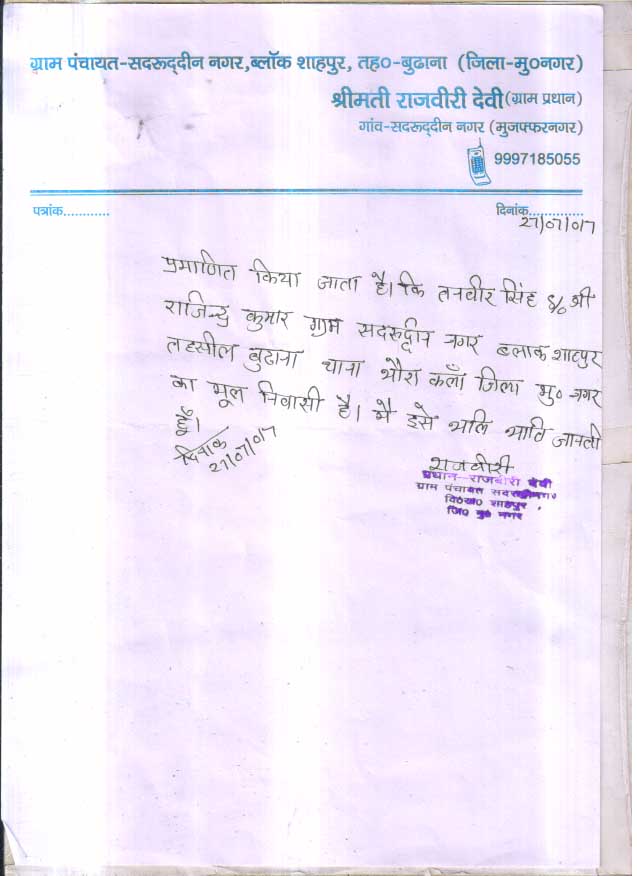 ग्राम पंचायत-सदरूद्दीन नगर,ब्लॉक शाहपुर, तह०-बुढाना (जिला-मु०नगर)
श्रीमती राजवीरी देवी(ग्राम प्रधान)
गांव-सदरूद्दीन नगर (मुजफ्फरनगर)
9997185055
पत्रांक............ दिनांक..............
27/07/017
प्रमाणित किया जाता है। कि तनवीर सिंह S/o श्री
राजिन्द्र कुमार ग्राम सदरूद्दीन नगर ब्लाक शाहपुर
तहसील बुढाना थाना भौरा कलाँ जिला मु० नगर
का मूल निवासी है। मै इसे भलि भाति जानती
हूँ।
दिनांक
27/07/017
राजवीरी
प्रधान-राजवीरी देवी
ग्राम पंचायत सदरूद्दीनन०
वि०ख० शाहपुर
जि० मु० नगर